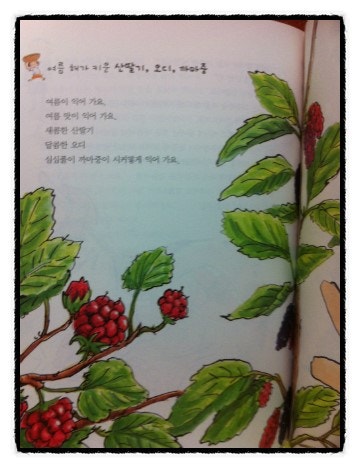 여름 해가 키운 산딸기, 오디, 까마중
여름이 익어 가요.
여름 맛이 익어 가요.
새콤한 산딸기
달콤한 오디
심심풀이 까마중이 시커멓게 익어 가요.